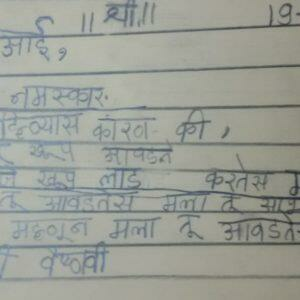 ॥ श्री ॥ 19-
आई,
नमस्कार.
लिहिण्यास कारण की,
खूप आवडते
खूप लाड करतेस
तू आवडतेस मला तू
म्हणून मला तू आवडते
वैष्णवी